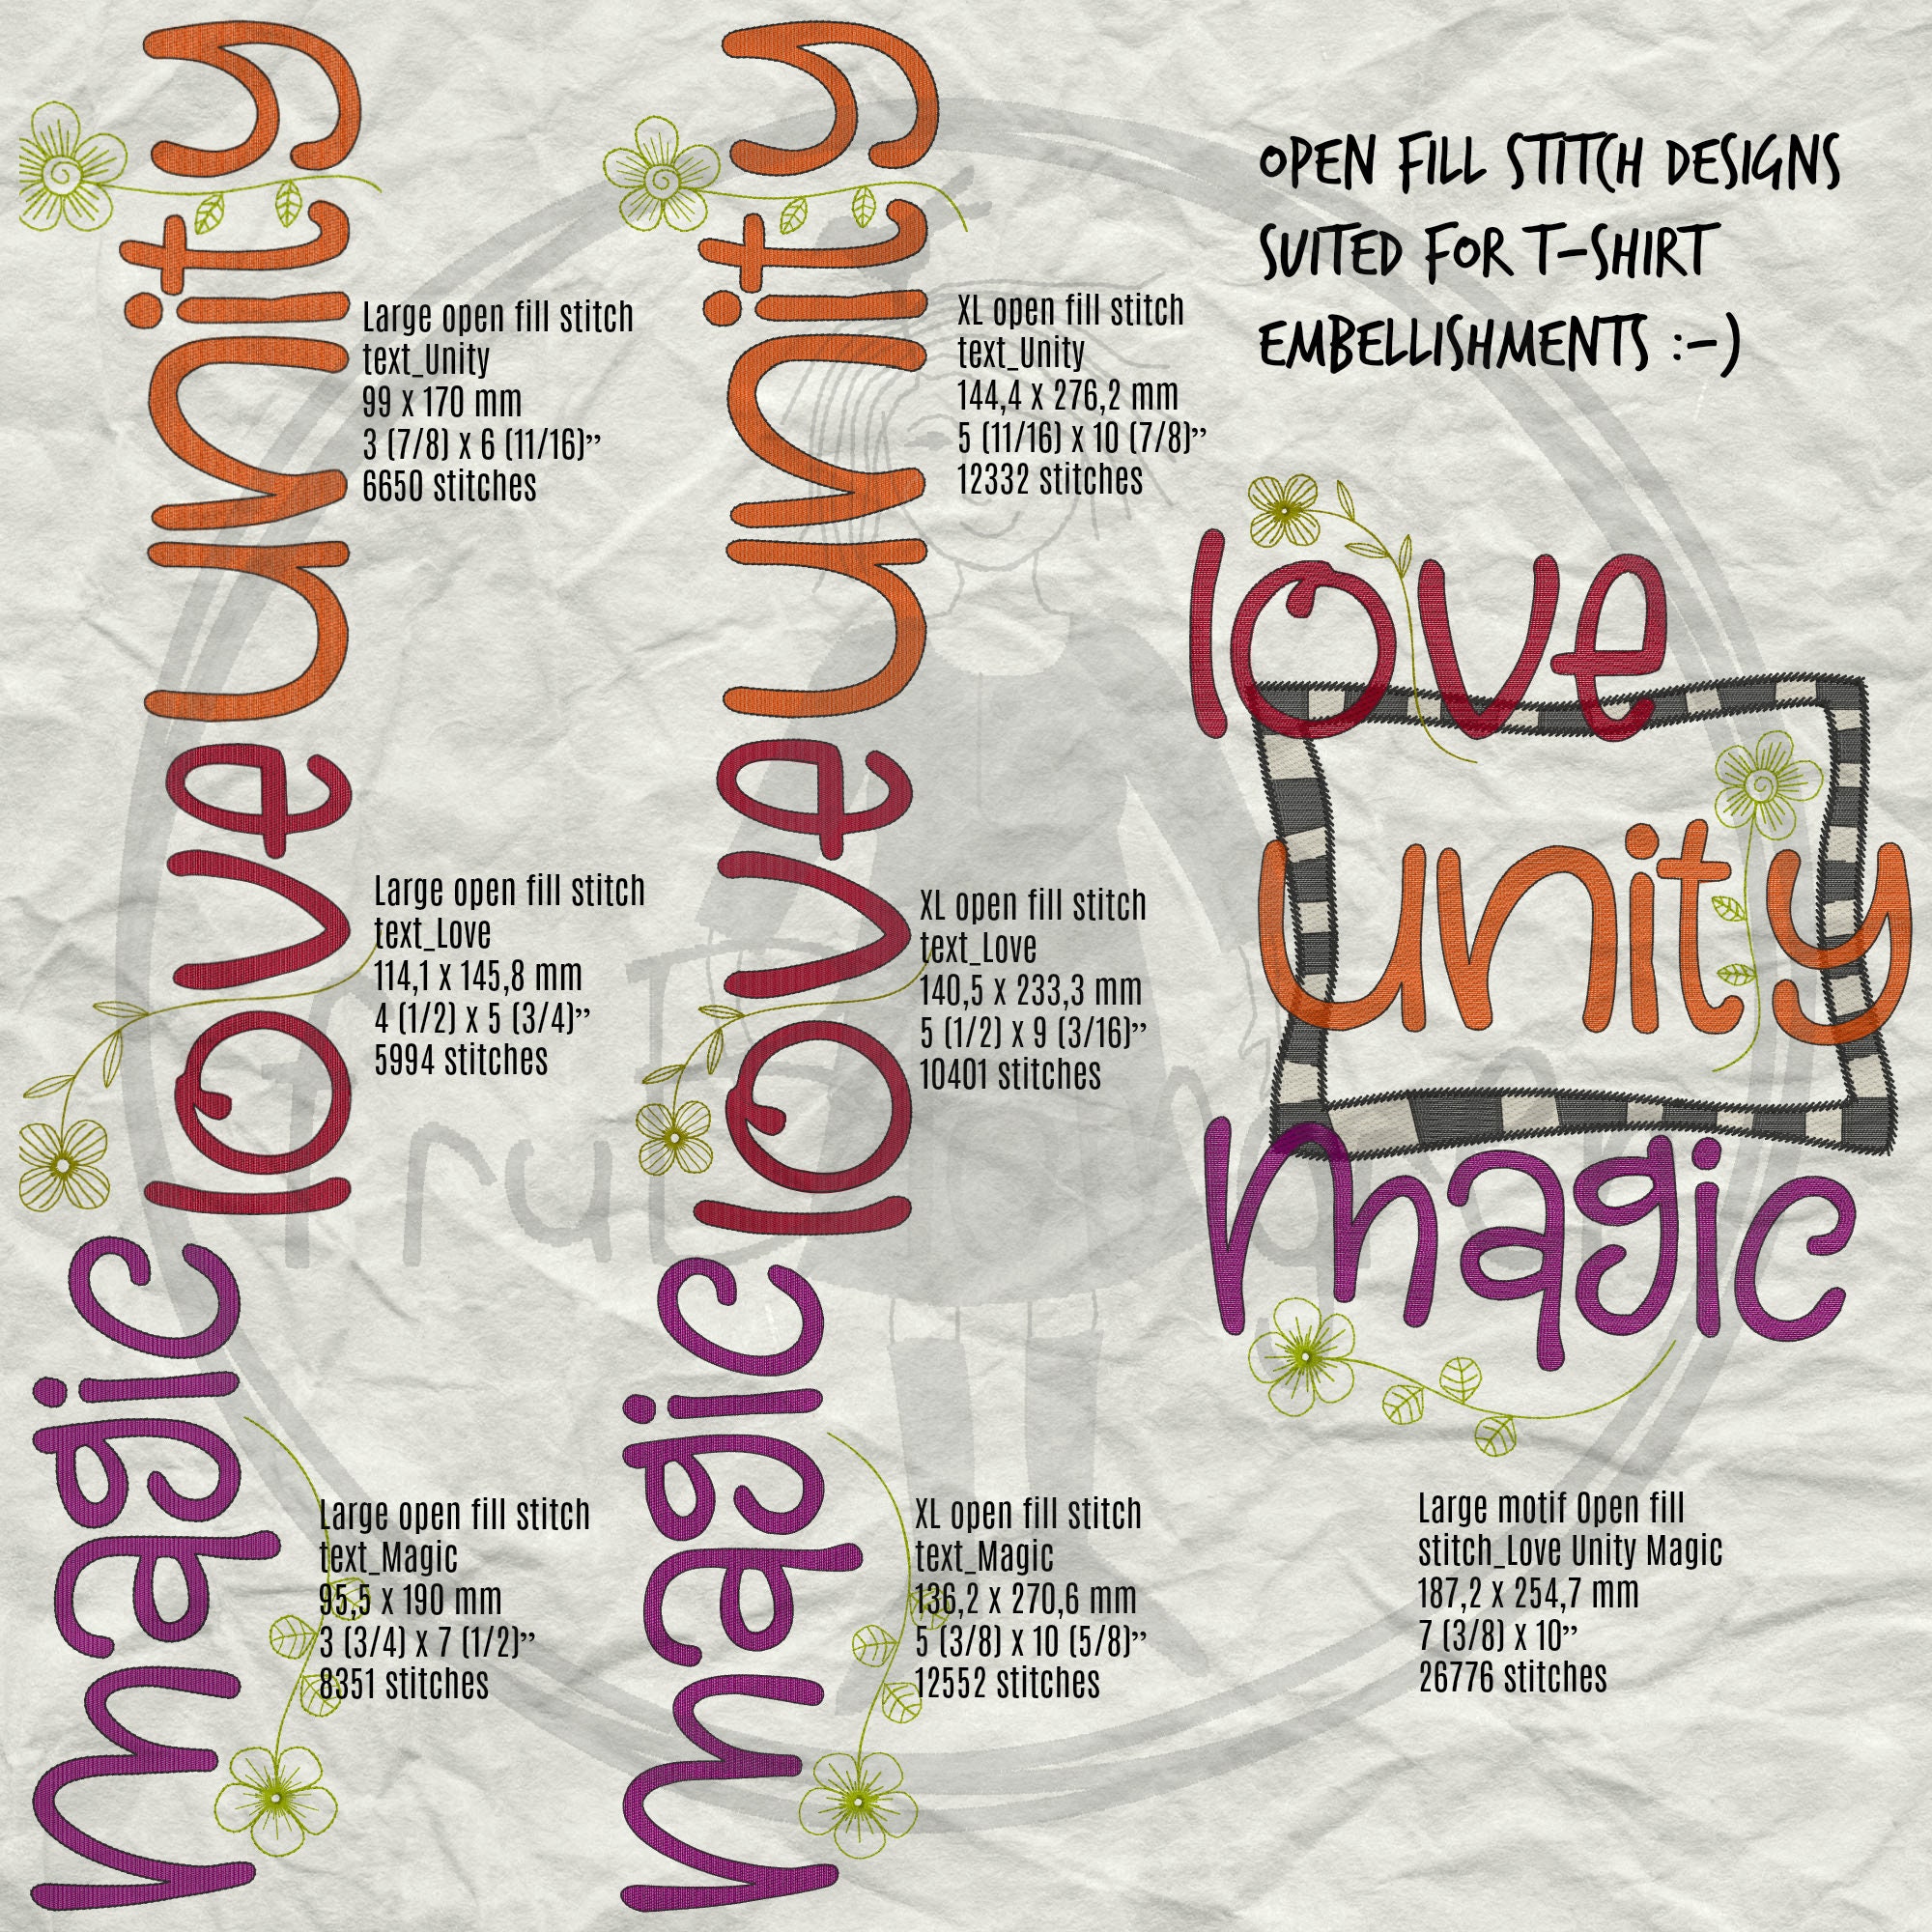 OPEN FILL STITCH DESIGNS
SUITED FOR T-SHIRT
EMBELLISHMENTS :-)
unity
Large open fill stitch
text_Unity
99 x 170 mm
3 (7/8) x 6 (11/16)”
6650 stitches
unity
XL open fill stitch
text_Unity
144,4 x 276,2 mm
5 (11/16) x 10 (7/8)”
12332 stitches
love
Large open fill stitch
text_Love
114,1 x 145,8 mm
4 (1/2) x 5 (3/4)”
5994 stitches
love
XL open fill stitch
text_Love
140,5 x 233,3 mm
5 (1/2) x 9 (3/16)”
10401 stitches
magic
Large open fill stitch
text_Magic
95,5 x 190 mm
3 (3/4) x 7 (1/2)”
8351 stitches
magic
XL open fill stitch
text_Magic
136,2 x 270,6 mm
5 (3/8) x 10 (5/8)”
12552 stitches
love
unity
magic
Large motif Open fill
stitch_Love Unity Magic
187,2 x 254,7 mm
7 (3/8) x 10”
26776 stitches